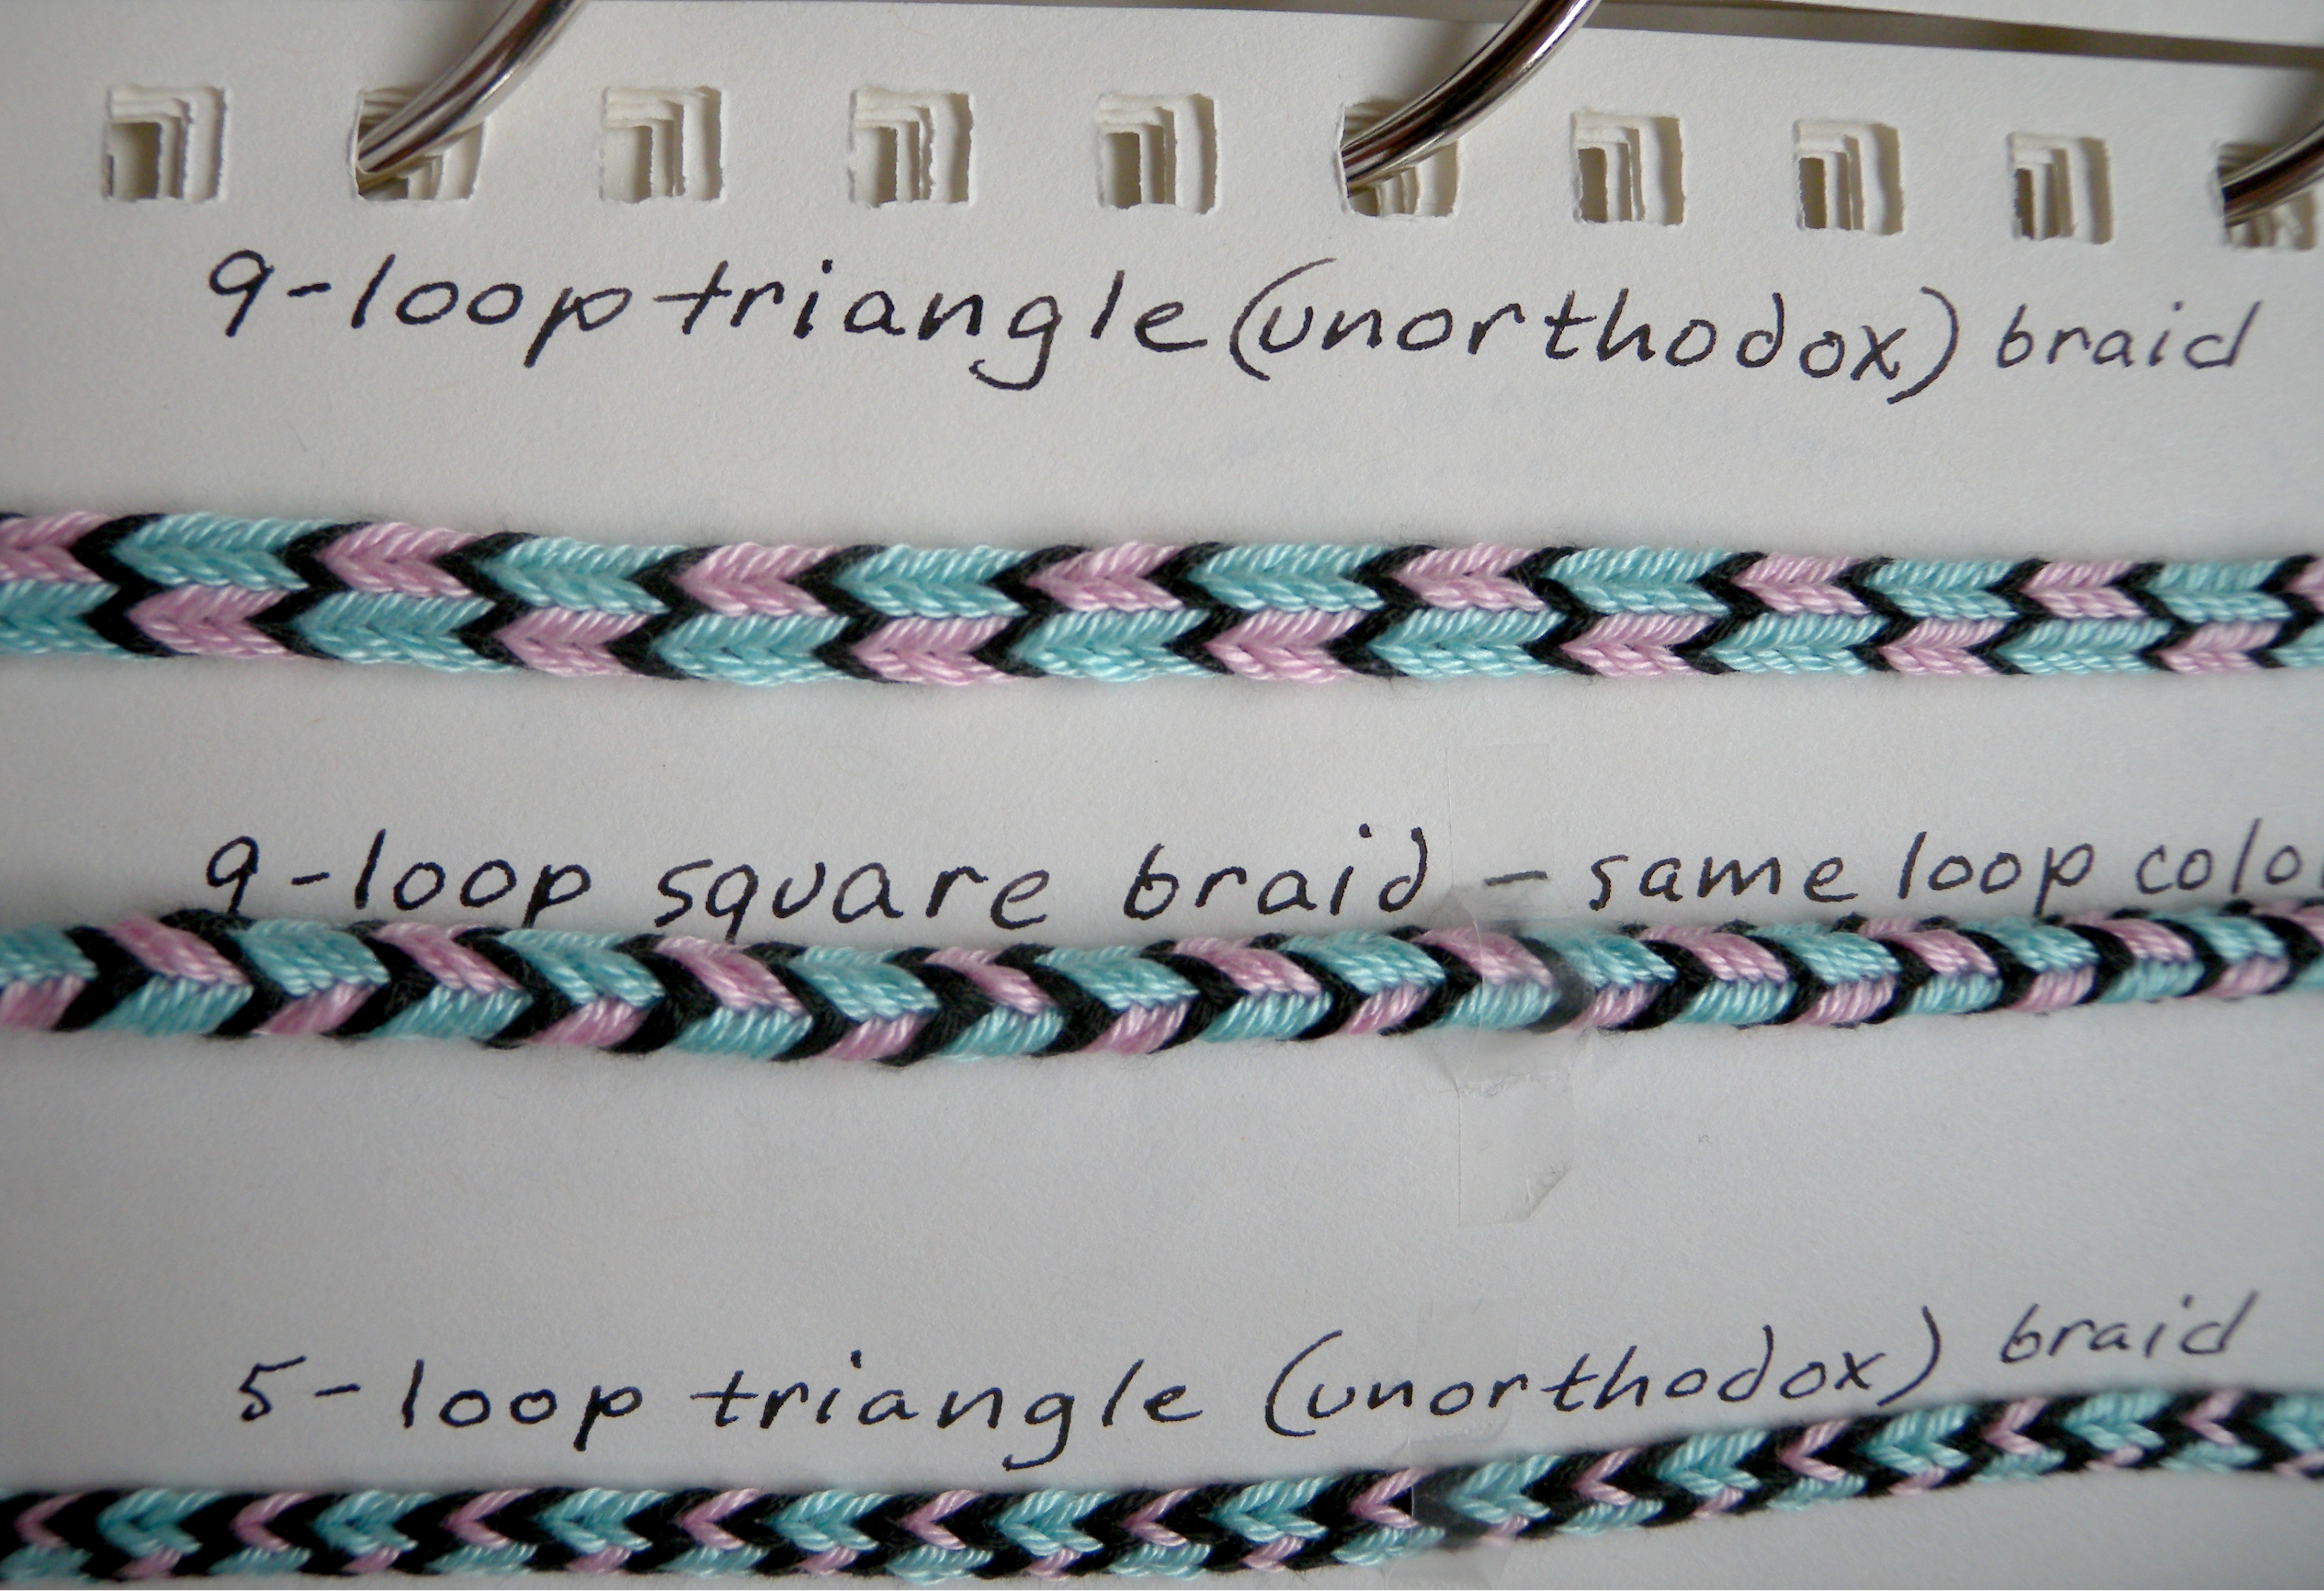 9-loop triangle (unorthodox) braid
9-loop square braid - same loop colo
5-loop triangle (unorthodox) braid